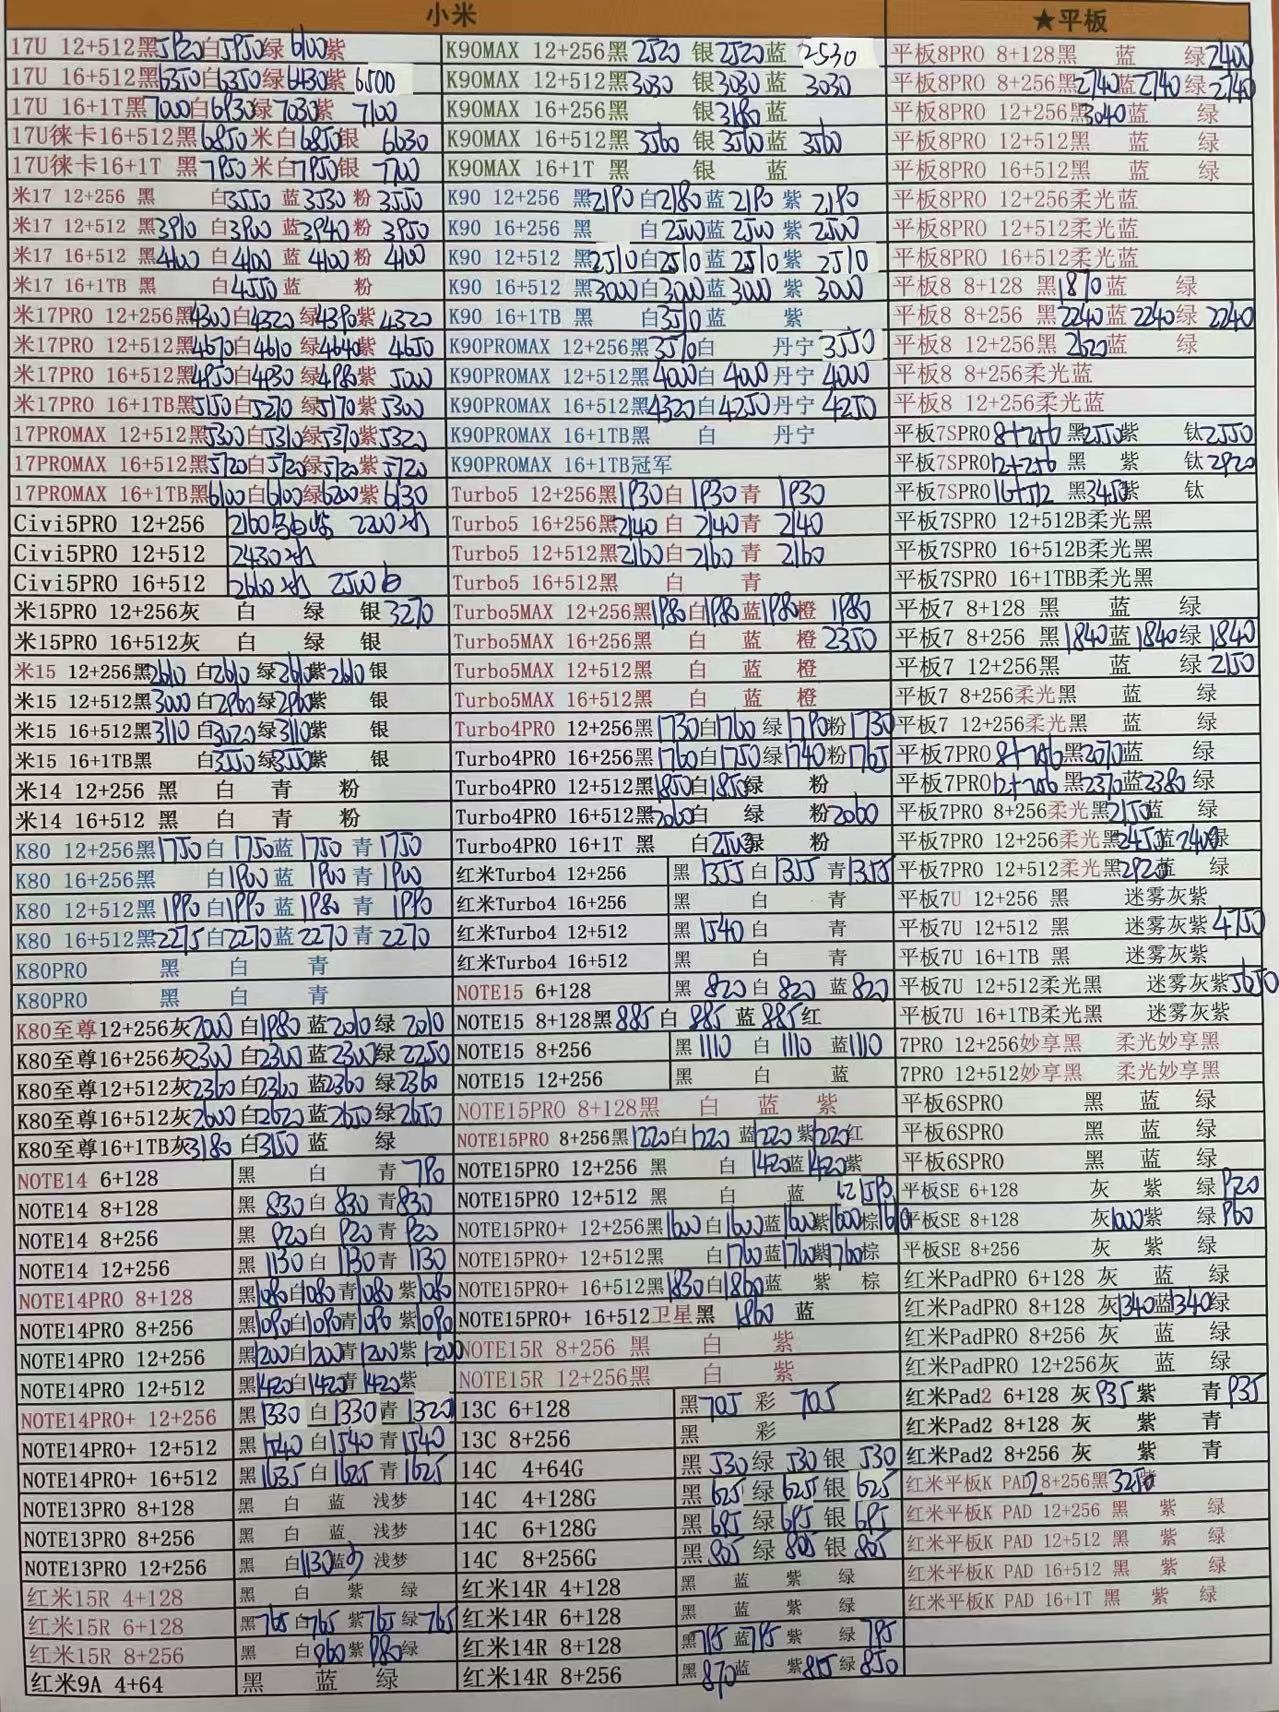 小米
17U 12+512黑5920白5950绿6100紫
17U 16+512黑6350白6350绿6430紫6500
17U 16+1T黑7000白6930绿7030紫7100
17U徕卡16+512黑6850米白6850银6630
17U徕卡16+1T 黑7950米白7950银7700
米17 12+256 黑 白3550蓝3530粉3550
米17 12+512 黑3910白3900蓝3940粉3950
米17 16+512 黑4100白4100蓝4100粉4100
米17 16+1TB 黑 白4550蓝 粉
米17PRO 12+256黑4300白4320绿4390紫4320
米17PRO 12+512黑4670白4610绿4640紫4650
米17PRO 16+512黑4950白4930绿4980紫5000
米17PRO 16+1TB黑5150白5270绿5170紫5300
17PROMAX 12+512黑5300白5310绿5370紫5320
17PROMAX 16+512黑5720白5720绿5720紫5720
17PROMAX 16+1TB黑6100白6100绿6200紫6130
Civi5PRO 12+256 2160 白紫 2200冰
Civi5PRO 12+512 2430冰
Civi5PRO 16+512 2660冰 2500白
米15PRO 12+256灰 白 绿 银3270
米15PRO 16+512灰 白 绿 银
米15 12+256黑2610白2610绿2610紫2610银
米15 12+512黑3000白2960绿2960紫 银
米15 16+512黑3110白3020绿3110紫 银
米15 16+1TB黑 白3550绿3550紫 银
米14 12+256 黑 白 青 粉
米14 16+512 黑 白 青 粉
K80 12+256黑1750白1750蓝1750青1750
K80 16+256黑 白1900蓝1900青1900
K80 12+512黑1990白1990蓝1980青1990
K80 16+512黑2275白2270蓝2270青2270
K80PRO 黑 白 青
K80PRO 黑 白 青
K80至尊12+256灰2000白1980蓝2010绿2010
K80至尊16+256灰2300白2300蓝2300绿2250
K80至尊12+512灰2360白2360蓝2360绿2360
K80至尊16+512灰2600白2620蓝2650绿2650
K80至尊16+1TB灰3180白3150蓝 绿
NOTE14 6+128 黑 白 青790
NOTE14 8+128 黑830白830青830
NOTE14 8+256 黑920白920青920
NOTE14 12+256 黑1130白1130青1130
NOTE14PRO 8+128 黑1080白1080青1080紫1080
NOTE14PRO 8+256 黑1090白1090青1090紫1090
NOTE14PRO 12+256 黑1200白1200青1200紫1200
NOTE14PRO 12+512 黑1420白1420青1420紫
NOTE14PRO+ 12+256 黑1330白1330青1320
NOTE14PRO+ 12+512 黑1540白1540青1540
NOTE14PRO+ 16+512 黑1635白1625青1625
NOTE13PRO 8+128 黑 白 蓝 浅梦
NOTE13PRO 8+256 黑 白 蓝 浅梦
NOTE13PRO 12+256 黑 白1130蓝 浅梦
红米15R 4+128 黑 白 紫 绿
红米15R 6+128 黑765白765紫765绿765
红米15R 8+256 黑 白960紫980绿
红米9A 4+64 黑 蓝 绿
K90MAX 12+256黑2520银2520蓝2530
K90MAX 12+512黑3030银3030蓝3030
K90MAX 16+256黑 银3180蓝
K90MAX 16+512黑3560银3560蓝3560
K90MAX 16+1T 黑 银 蓝
K90 12+256 黑2190白2180蓝2190紫2190
K90 16+256 黑 白2500蓝2500紫2500
K90 12+512 黑2510白2510蓝2510紫2510
K90 16+512 黑3000白3000蓝3000紫3000
K90 16+1TB 黑 白3510蓝 紫
K90PROMAX 12+256黑3510白 丹宁3550
K90PROMAX 12+512黑4000白4000丹宁4000
K90PROMAX 16+512黑4320白4250丹宁4250
K90PROMAX 16+1TB黑 白 丹宁
K90PROMAX 16+1TB冠军
Turbo5 12+256黑1930白1930青1930
Turbo5 16+256黑2140白2140青2140
Turbo5 12+512黑2160白2160青2160
Turbo5 16+512黑 白 青
Turbo5MAX 12+256黑1980白1980蓝1980橙1980
Turbo5MAX 16+256黑 白 蓝 橙2350
Turbo5MAX 12+512黑 白 蓝 橙
Turbo5MAX 16+512黑 白 蓝 橙
Turbo4PRO 12+256黑1730白1760绿1790粉1730
Turbo4PRO 16+256黑1760白1750绿1740粉1765
Turbo4PRO 12+512黑1850白1850绿 粉
Turbo4PRO 16+512黑2060白 绿 粉2060
Turbo4PRO 16+1T 黑 白2500绿 粉
红米Turbo4 12+256 黑1355白1355青1355
红米Turbo4 16+256 黑 白 青
红米Turbo4 12+512 黑1540白 青
红米Turbo4 16+512 黑 白 青
NOTE15 6+128 黑820白820蓝820
NOTE15 8+128黑885白885蓝885红
NOTE15 8+256 黑1110白1110蓝1110
NOTE15 12+256 黑 白 蓝
NOTE15PRO 8+128黑 白 蓝 紫
NOTE15PRO 8+256黑1220白1220蓝1220紫1220红
NOTE15PRO 12+256 黑 白1420蓝1420紫
NOTE15PRO 12+512 黑 白 蓝
NOTE15PRO+ 12+256黑1600白1600蓝1600紫1600棕1610
NOTE15PRO+ 12+512黑 白1760蓝1760紫1760棕
NOTE15PRO+ 16+512黑1830白1860蓝 紫 棕
NOTE15PRO+ 16+512卫星黑1860蓝
NOTE15R 8+256 黑 白 紫
NOTE15R 12+256黑 白 紫
13C 6+128 黑705彩705
13C 8+256 黑 彩
14C 4+64G 黑530绿530银530
14C 4+128G 黑625绿625银625
14C 6+128G 黑695绿695银695
14C 8+256G 黑805绿805银805
红米14R 4+128 黑 蓝 紫 绿
红米14R 6+128 黑 蓝 紫 绿
红米14R 8+128 黑795蓝795紫 绿795
红米14R 8+256 黑870蓝 紫855绿850
★平板
平板8PRO 8+128黑 蓝 绿2400
平板8PRO 8+256黑2740蓝2740绿2740
平板8PRO 12+256黑3040蓝 绿
平板8PRO 12+512黑 蓝 绿
平板8PRO 16+512黑 蓝 绿
平板8PRO 12+256柔光蓝
平板8PRO 12+512柔光蓝
平板8PRO 16+512柔光蓝
平板8 8+128 黑1870蓝 绿
平板8 8+256 黑2240蓝2240绿2240
平板8 12+256黑2620蓝 绿
平板8 8+256柔光蓝
平板8 12+256柔光蓝
平板7SPRO 8+256黑2550紫 钛2550
平板7SPRO 12+256黑 紫 钛2920
平板7SPRO 16+512黑3450紫 钛
平板7SPRO 12+512B柔光黑
平板7SPRO 16+512B柔光黑
平板7SPRO 16+1TBB柔光黑
平板7 8+128 黑 蓝 绿
平板7 8+256 黑1840蓝1840绿1840
平板7 12+256黑 蓝 绿2150
平板7 8+256柔光黑 蓝 绿
平板7 12+256柔光黑 蓝 绿
平板7PRO 8+256黑2070蓝 绿
平板7PRO 12+256黑2370蓝2380绿
平板7PRO 8+256柔光黑2150蓝 绿
平板7PRO 12+256柔光黑2450蓝2400绿
平板7PRO 12+512柔光黑2920蓝 绿
平板7U 12+256 黑 迷雾灰紫
平板7U 12+512 黑 迷雾灰紫4750
平板7U 16+1TB 黑 迷雾灰紫
平板7U 12+512柔光黑 迷雾灰紫5650
平板7U 16+1TB柔光黑 迷雾灰紫
7PRO 12+256妙享黑 柔光妙享黑
7PRO 12+512妙享黑 柔光妙享黑
平板6SPRO 黑 蓝 绿
平板6SPRO 黑 蓝 绿
平板6SPRO 黑 蓝 绿
平板SE 6+128 灰 紫 绿920
平板SE 8+128 灰1000紫 绿960
平板SE 8+256 灰 紫 绿
红米PadPRO 6+128 灰 蓝 绿
红米PadPRO 8+128 灰1340蓝1340绿
红米PadPRO 8+256 灰 蓝 绿
红米PadPRO 12+256灰 蓝 绿
红米Pad2 6+128 灰935紫 青935
红米Pad2 8+128 灰 紫 青
红米Pad2 8+256 灰 紫 青
红米平板K PAD2 8+256黑3250
红米平板K PAD 12+256 黑 紫 绿
红米平板K PAD 12+512 黑 紫 绿
红米平板K PAD 16+512 黑 紫 绿
红米平板K PAD 16+1T 黑 紫 绿